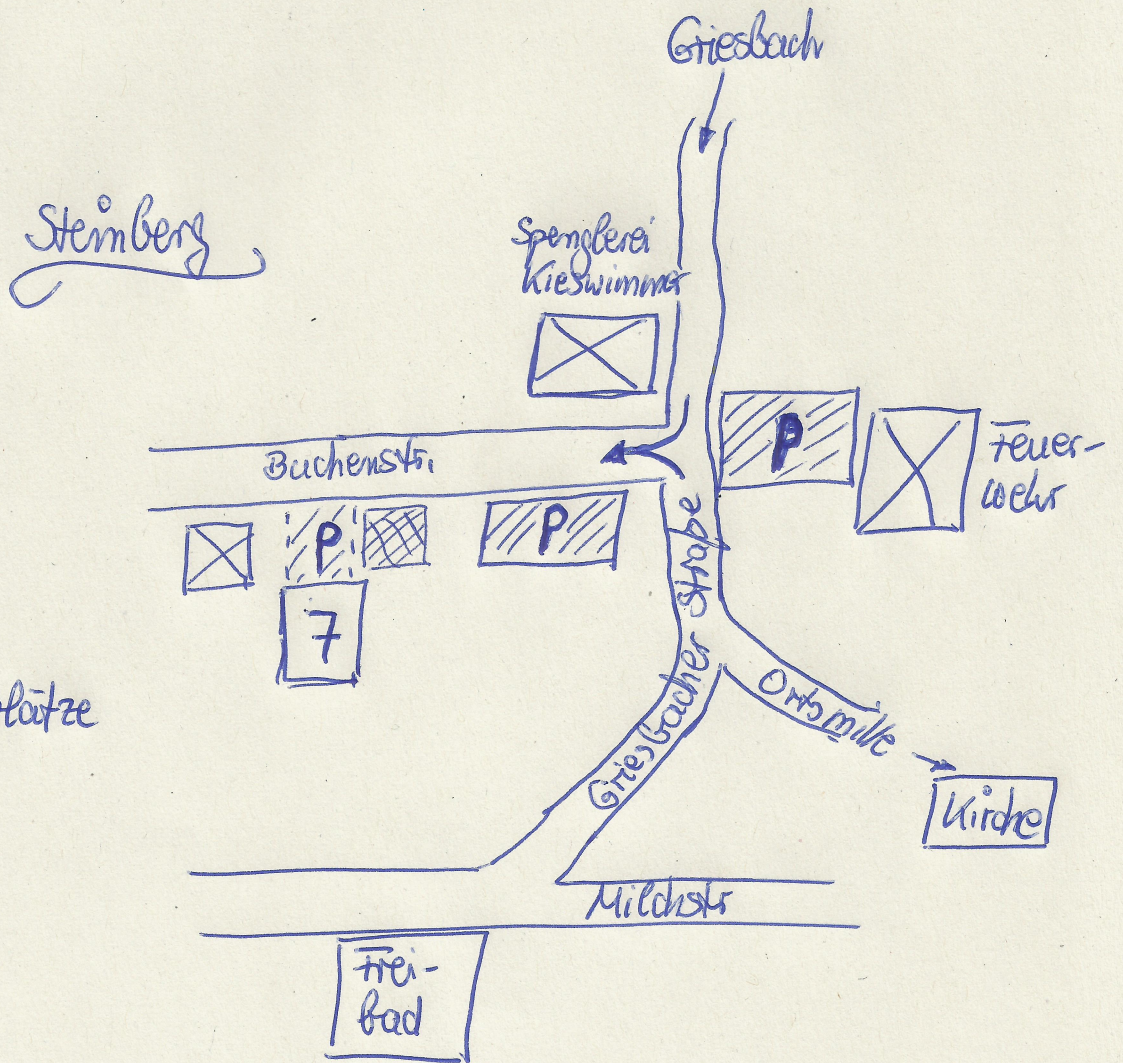 Griesbach
Steinberg
Spenglerei
Kieswimmer
P
Feuer-
wehr
Buchenstr.
P
P
7
Griesbacher Straße
Ortsmitte
Kirche
Milchstr
Frei-
bad